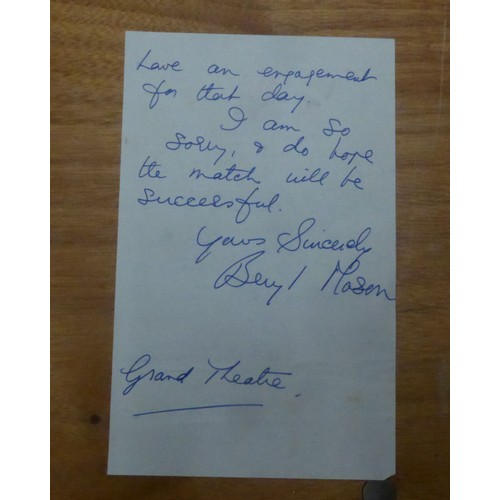 have an engagement
for that day.
I am so
sorry, & do hope
the match will be
successful.
Yours Sincerely
Beryl Mason
Grand Theatre.